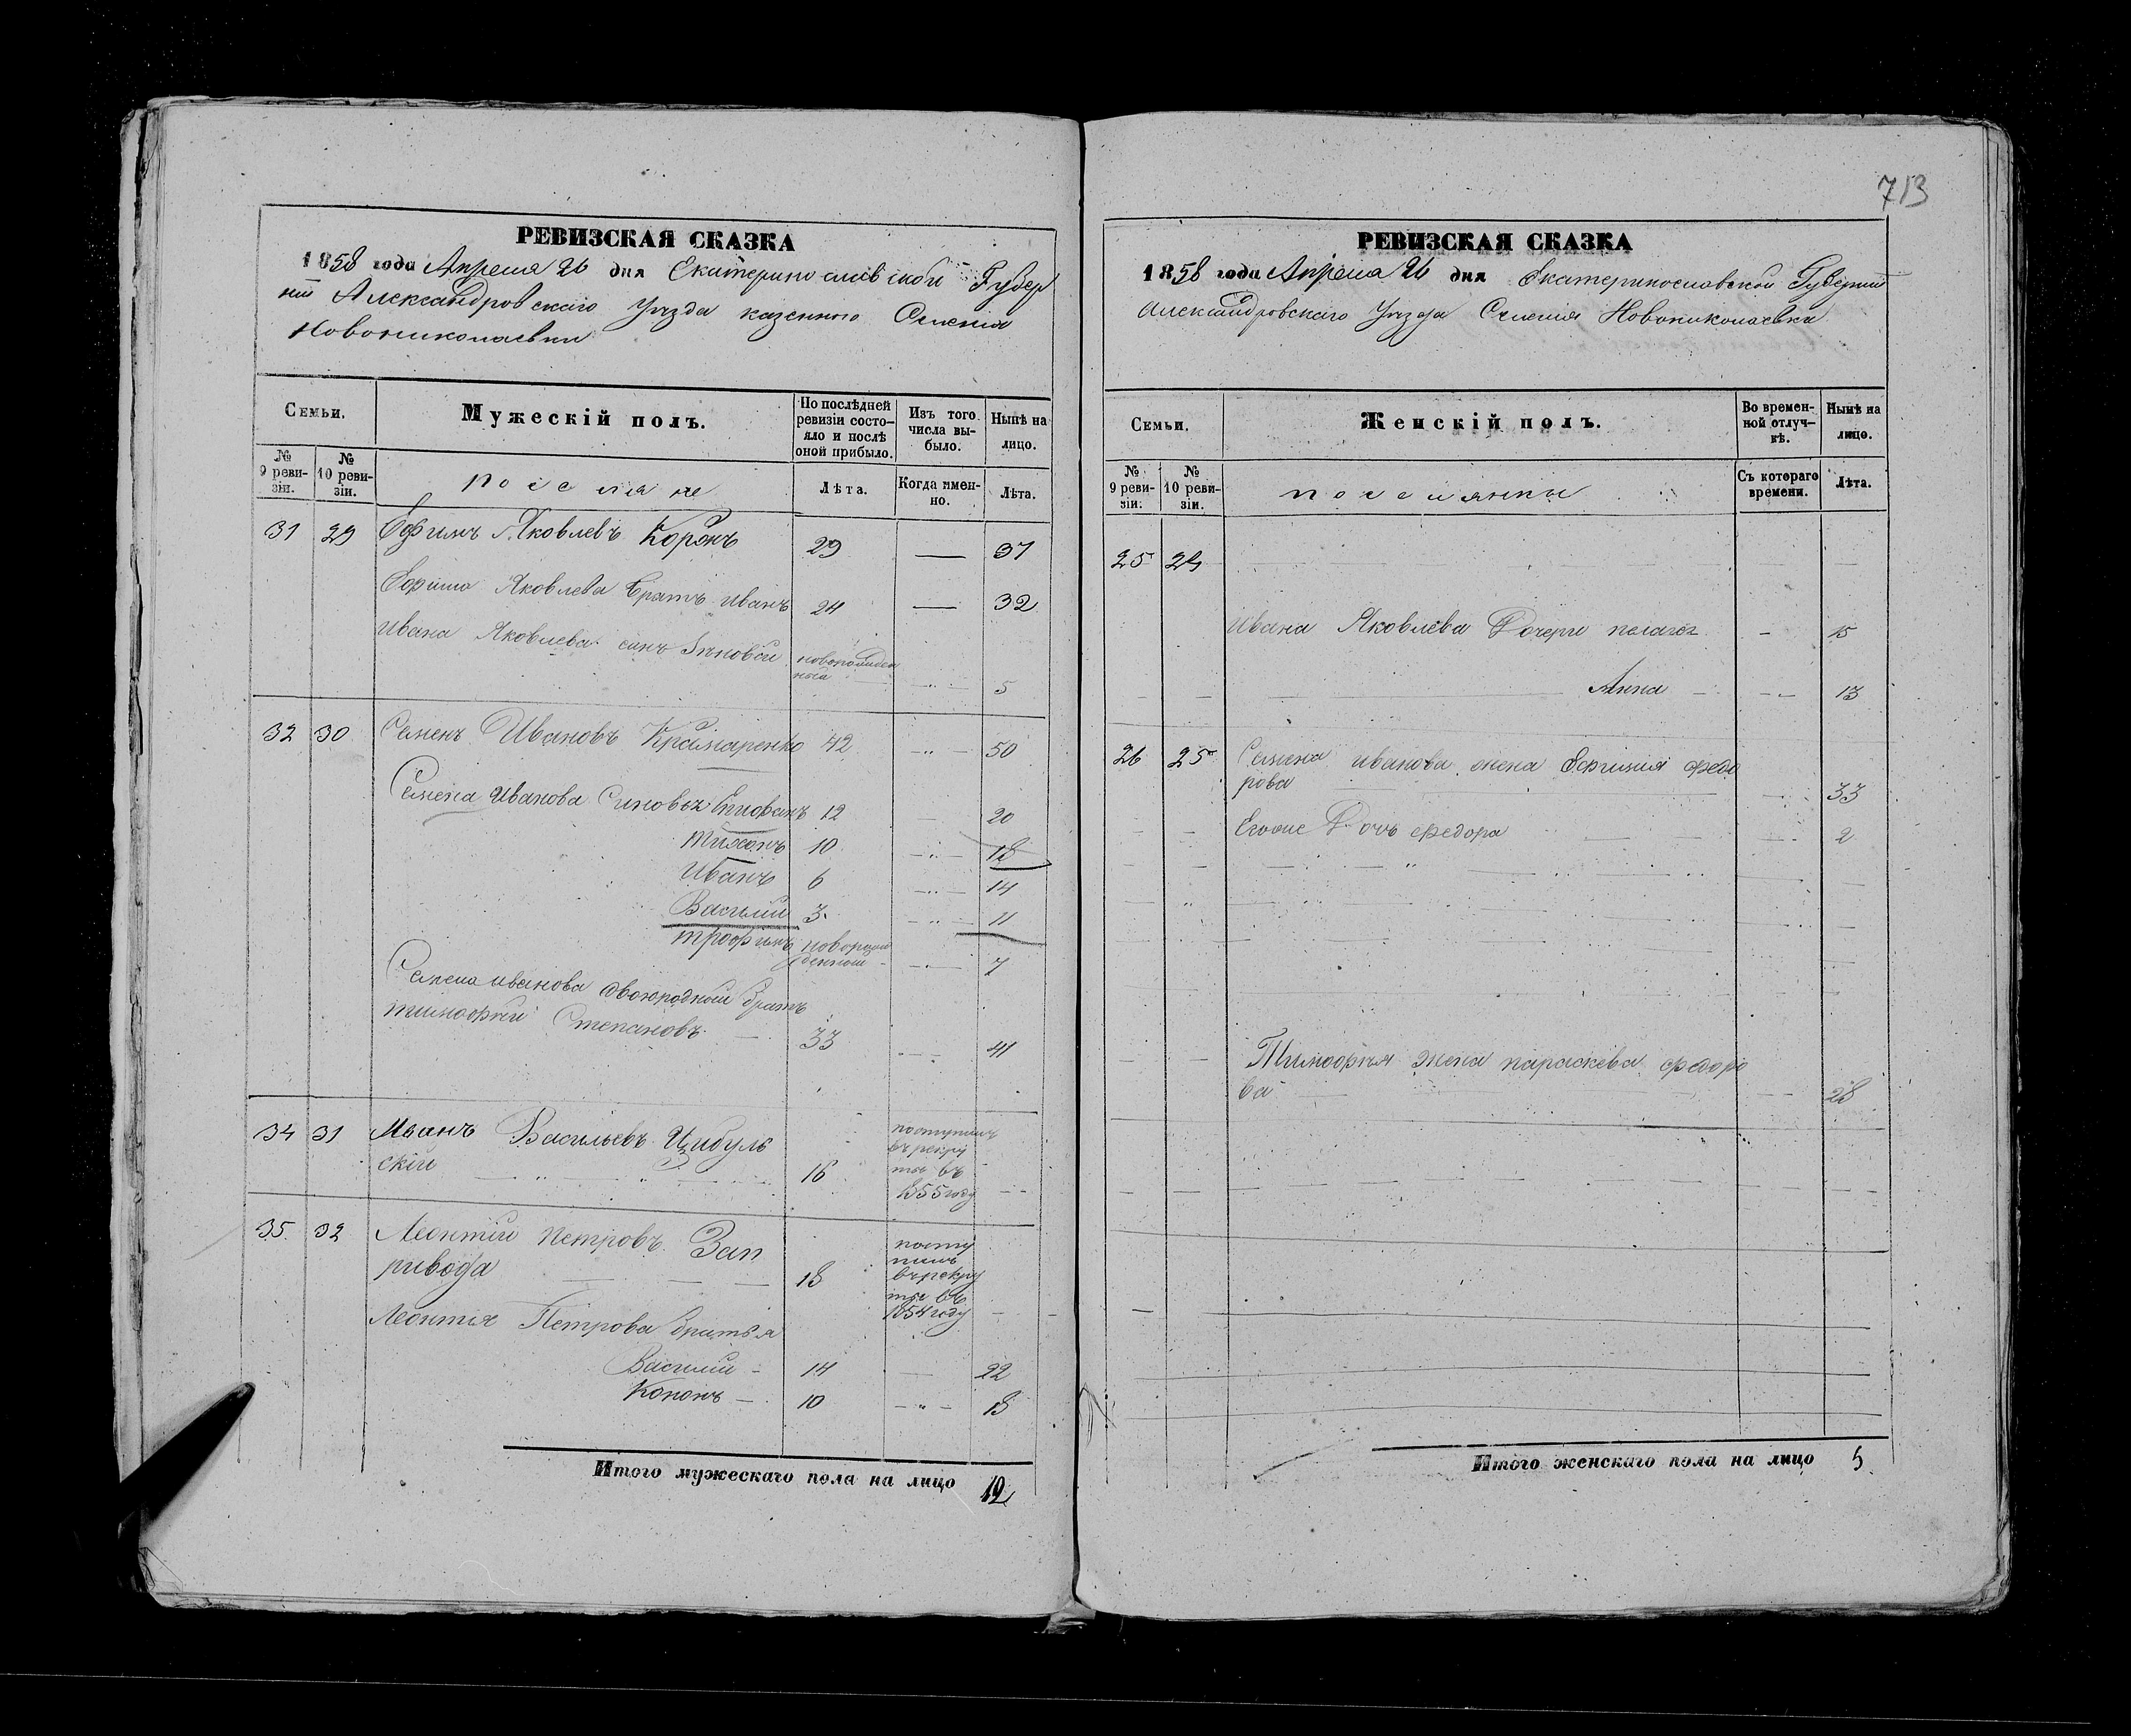 РЕВИЗСКАЯ СКАЗКА
1858 года Апреля 26 дня Екатеринославской Губер
нии Александровскаго Уезда казенного Селения
Новониколаевки
Семьи.
Мужескій полъ.
По послѣдней ревизіи состояло и послѣ оной прибыло.
Изъ того числа выбыло.
Нынѣ на лицо.
№ 9 ревизіи.
№ 10 ревизіи.
поселяне
Лѣта.
Когда именно.
Лѣта.
31 29 Ефимъ Яковлевъ 29 — 37
Ефима Яковлева братъ Иванъ 24 — 32
Ивана Яковлева синъ Зѣновей новорожден
ный 5
32 30 Семенъ Ивановъ Крамаренко 42 — 50
Семена Иванова Синовья Епифанъ 12 — 20
Тихонъ 10 — 18
Иванъ 6 — 14
Василий 3 — 11
Трофимъ новорож
денный — 7
Семена иванова двоюродный братъ
тимофей Степановъ 33 — 41
34 31 Иванъ Васильевъ Цибуль
ский 16
поступилъ
въ рекру
ты въ
1855 году
35 32 Леонтий Петровъ Зап
ривода 18
посту
пилъ
въ рекру
ты въ
1854 году
Леонтия Петрова братья
Василий — 14 — 22
Кононъ — 10 — 18
Итого мужескаго пола на лицо 12
713
РЕВИЗСКАЯ СКАЗКА
1858 года Апреля 26 дня Екатеринославской Губернии
Александровскаго Уезда Селения Новониколаевка
Семьи.
Женскій полъ.
Во временной отлучкѣ.
Нынѣ на лицо.
№ 9 ревизіи.
№ 10 ревизіи.
поселянки
Съ котораго времени.
Лѣта.
25 24
Ивана Яковлева Дочери пелагея — 15
Анна — 13
26 25 Семена иванова жена Ефимия федо
рова 33
Егоже Дочь федора 2
Тимофея жена параскева федоро
ва 28
Итого женскаго пола на лицо 5